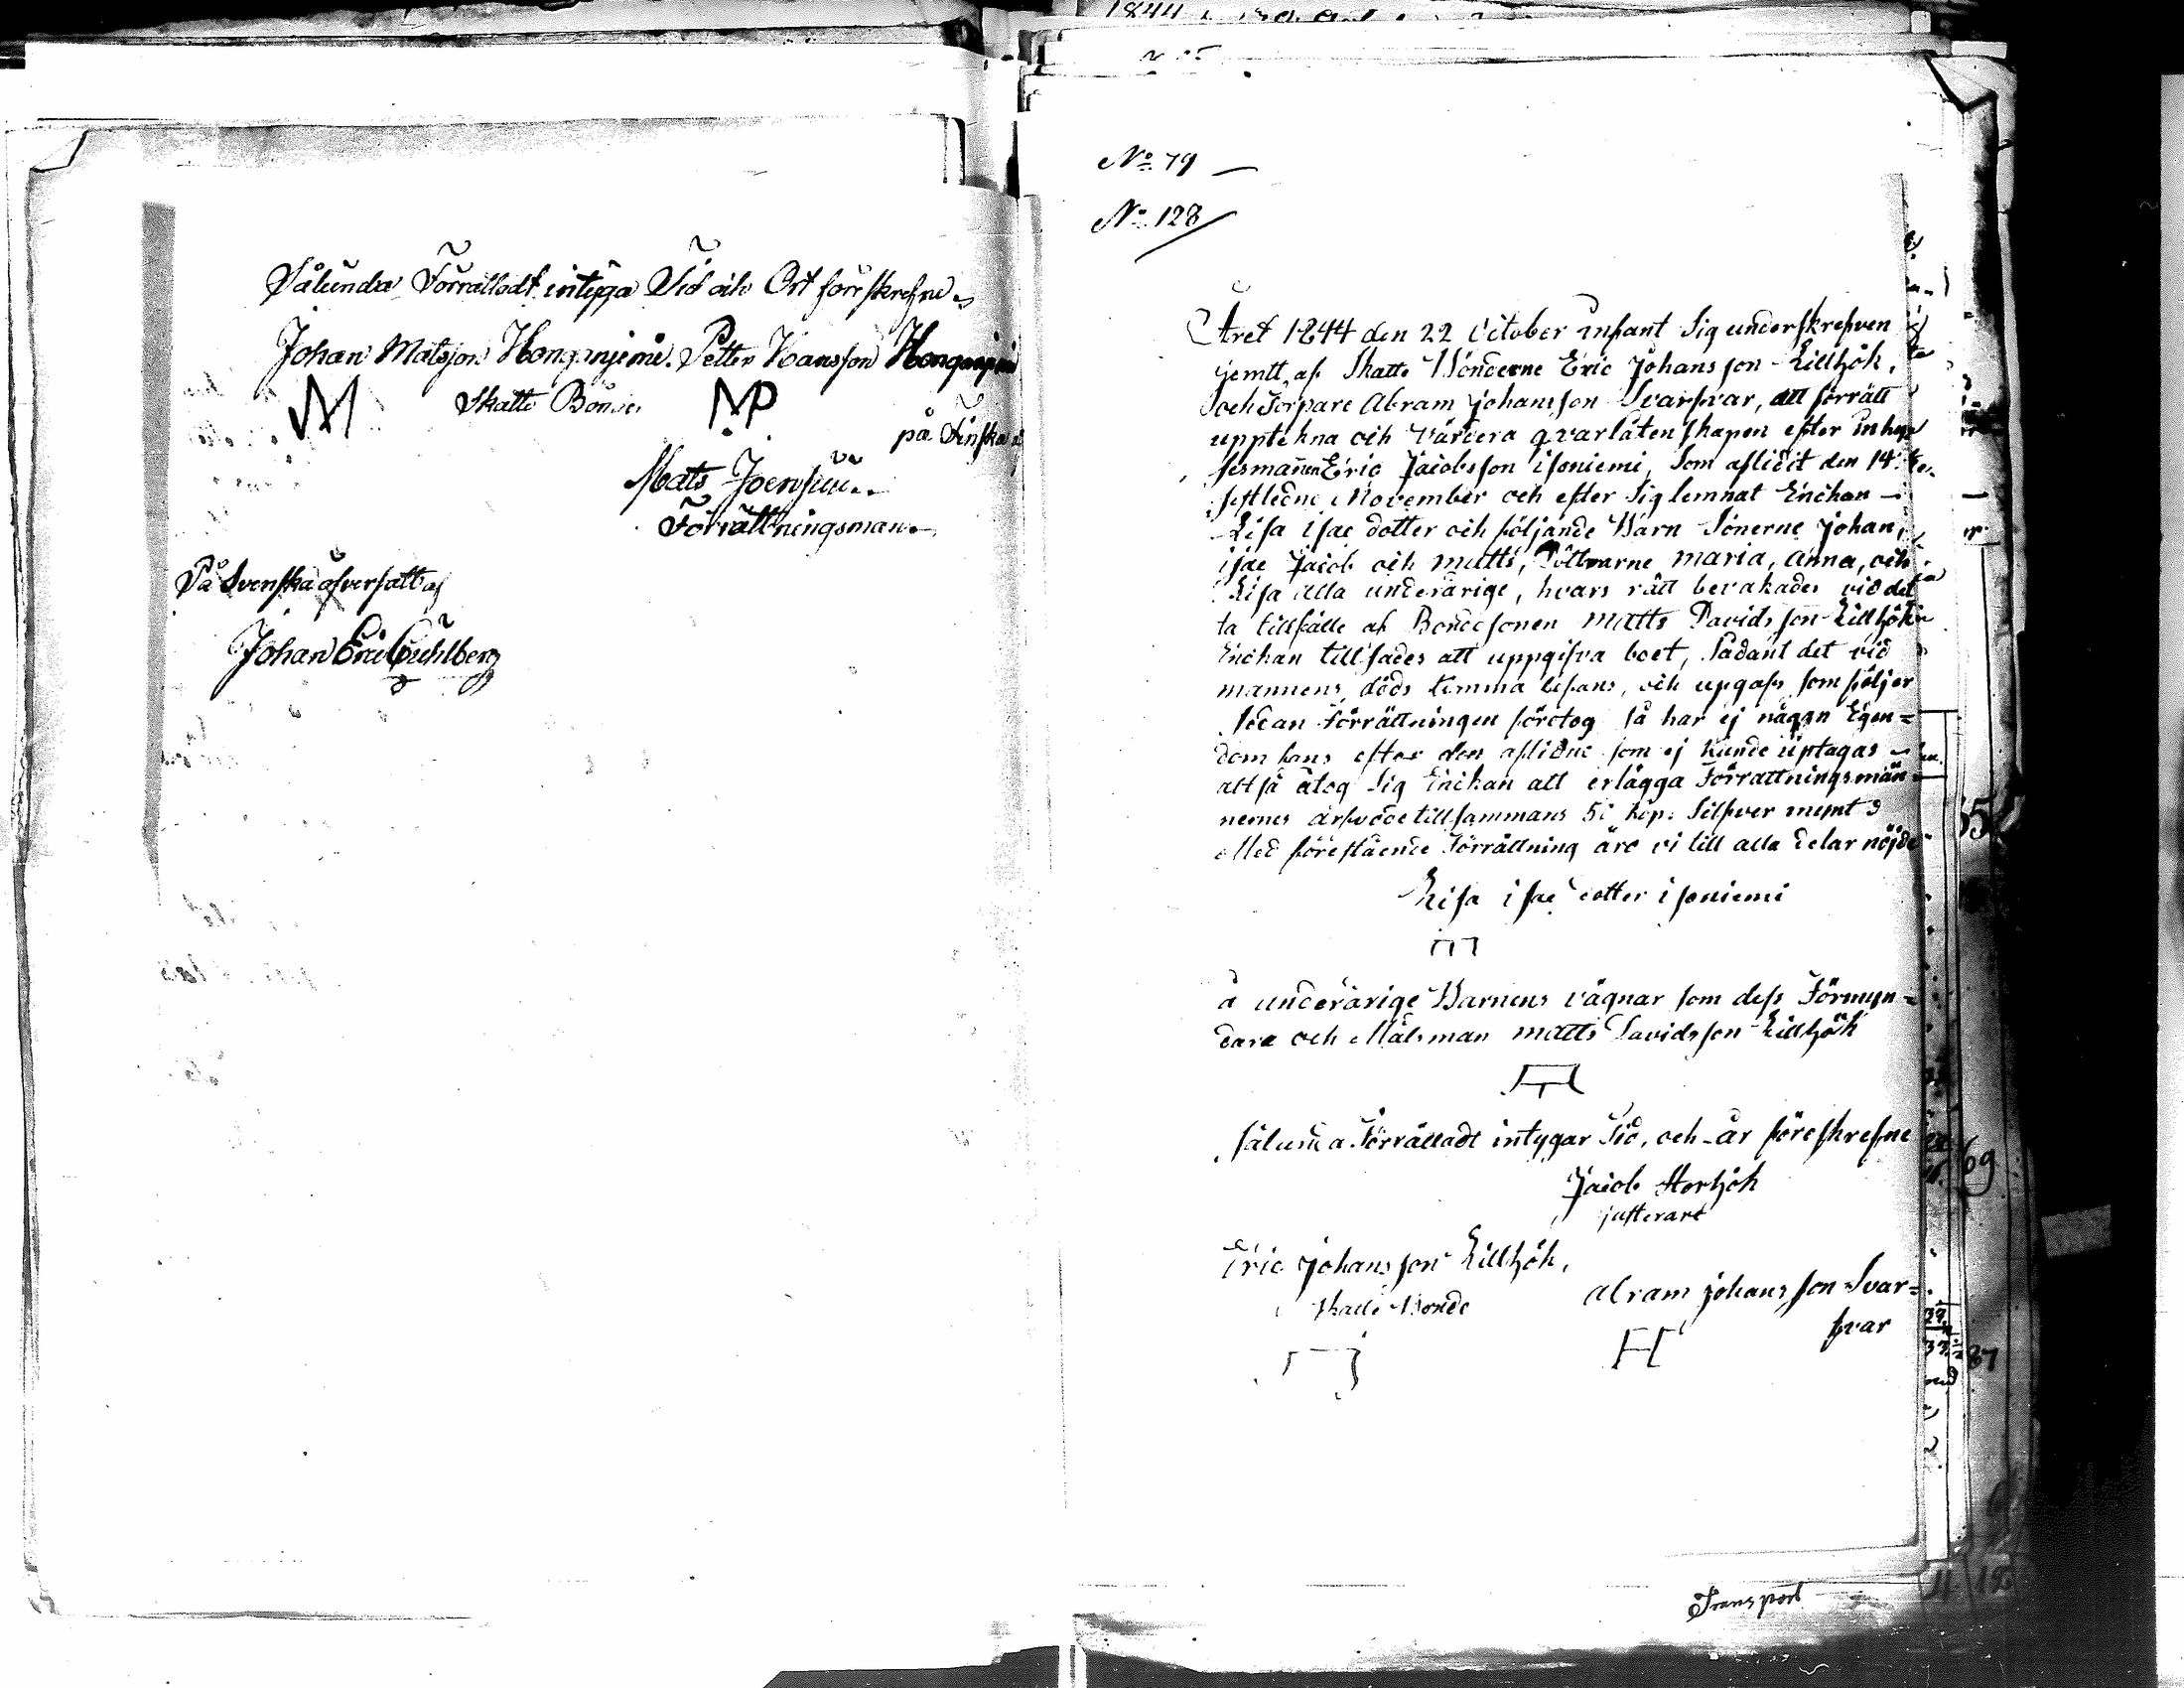 Sålunda Förrättadt intyga Tid och Ort föreskrefne
Johan Matsson Honganjemi. Petter Hansson Honganjemi
Skatte Bönder
på Finska
Mats Joensuu
Förrättningsman
På Svenska öfversatt af
Johan Eric
1844
No 79
No 128
Året 1844 den 22 October infant Sig underskrefven
jemte af Skatte Bönderne Eric Johansson Lillhök,
och Torpare Abram Johansson Svarfvar, att förrätt
upptekna och Värdera qvarlåtenskapen efter Inhy
sesmannen Eric Jacobsson isoniemi, Som aflidit den 14
sistledne November och efter Sig lemnat Enckan
Lisa isac dotter och följande Barn Sönerne Johan,
isac Jacob och matts, Döttrarne maria, anna, och
Lisa alla underårige, hvars rätt bevakades vid det
ta tillfälle af Bondesonen matts Davidsson Lillhök
Enckan tillsades att uppgifva boet, Sådant det vid
mannens döds timma befans, och upgafs som följer
Sedan Förrättningen företog så har ej någon Egen=
dom fans efter den aflidne som ej kunde uptagas
alt så åtog Sig Enckan att erlägga Förrättningsmän
nernes arfvode tillsammans 50 kop: Silfver mynt
Med förestående Förrättning äro vi till alla delar nöjde
Lisa isac dotter isoniemi
å underårige Barnens vägnar som dess Förmyn=
dare och Målsman matts Davidsson Lillhök
sålunda Förrättadt intygar Tid, och år föreskrefne
Jacob Storhök
justerare
Eric Johansson Lillhök,
Skatte Bonde
Abram Johansson Svar=
fvar
Transport